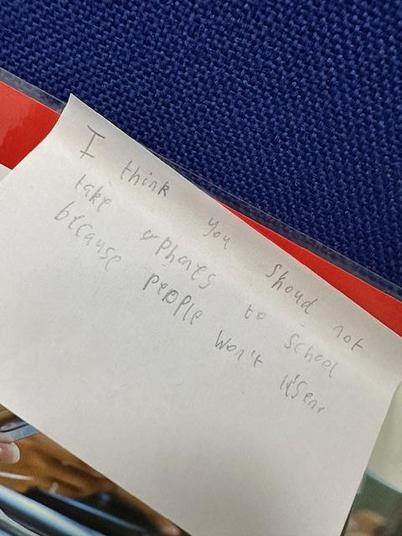 I think you shoud not
take phones to school
because people won't lisen